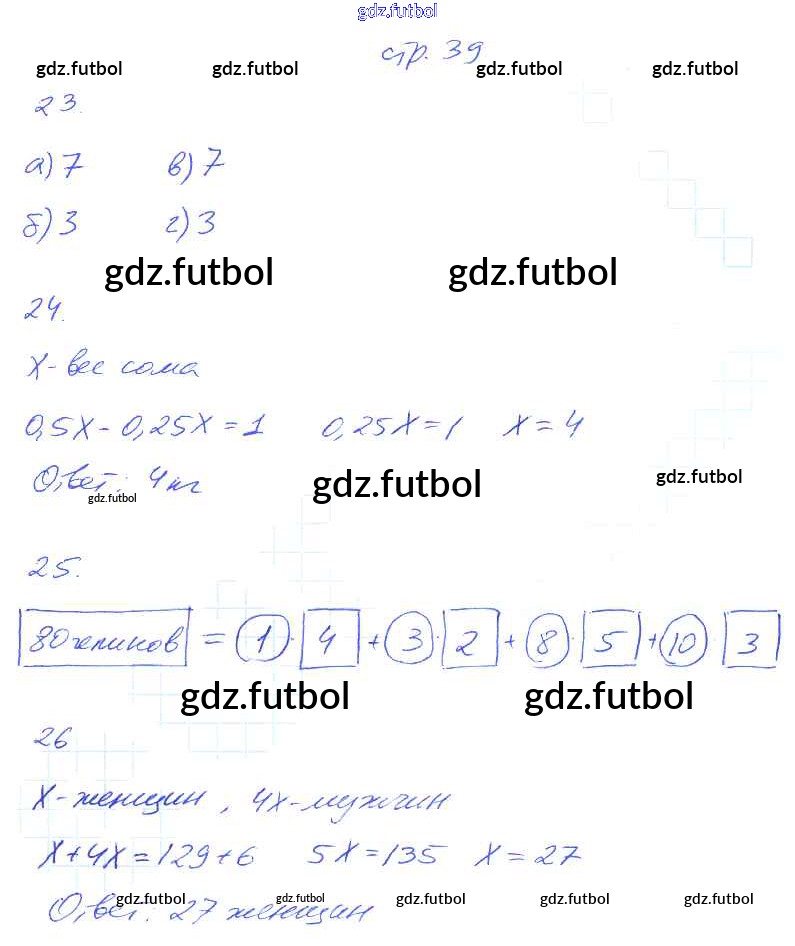 gdz.futbol
стр. 39
gdz.futbol gdz.futbol gdz.futbol gdz.futbol
23.
а) 7 в) 7
б) 3 г) 3
gdz.futbol gdz.futbol
24.
X - вес сома
0,5X - 0,25X = 1 0,25X = 1 X = 4
Ответ: 4 кг
gdz.futbol gdz.futbol gdz.futbol
25.
80 чипиков = 1 · 4 + 3 · 2 + 8 · 5 + 10 · 3
gdz.futbol gdz.futbol
26
X - женщин, 4X - мужчин
X + 4X = 129 + 6 5X = 135 X = 27
Ответ: 27 женщин
gdz.futbol gdz.futbol gdz.futbol gdz.futbol gdz.futbol